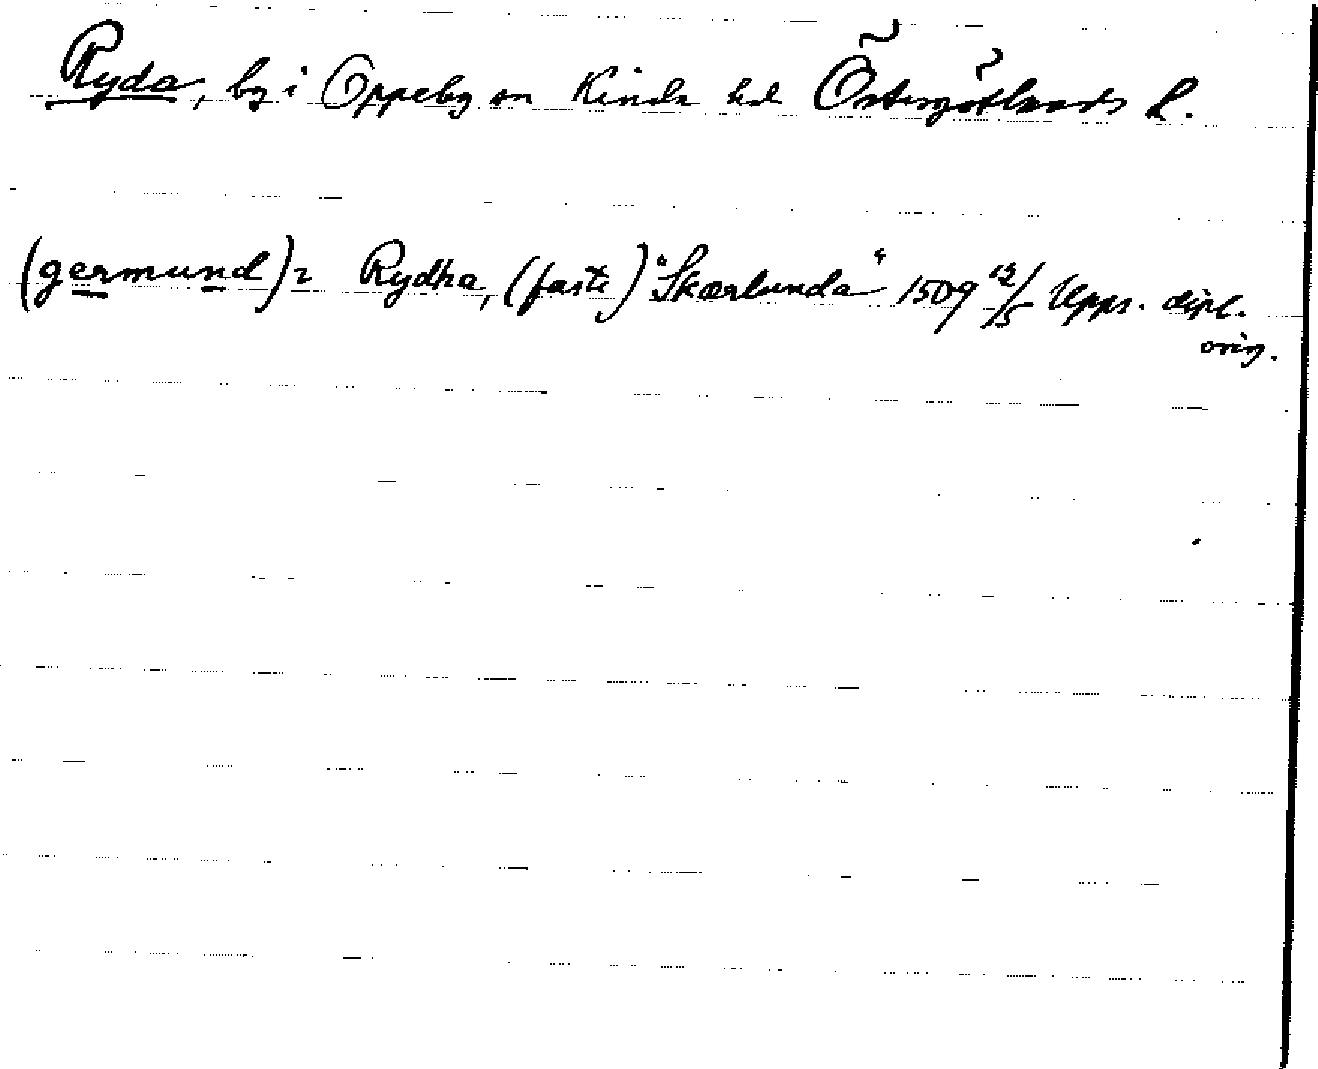 Ryda, by i Oppeby sn Kinda hd Östergötlands l.
(germund) i Rydha, (faste) "Skærlunda" 1509 12/5 Upps. dipl.
orig.